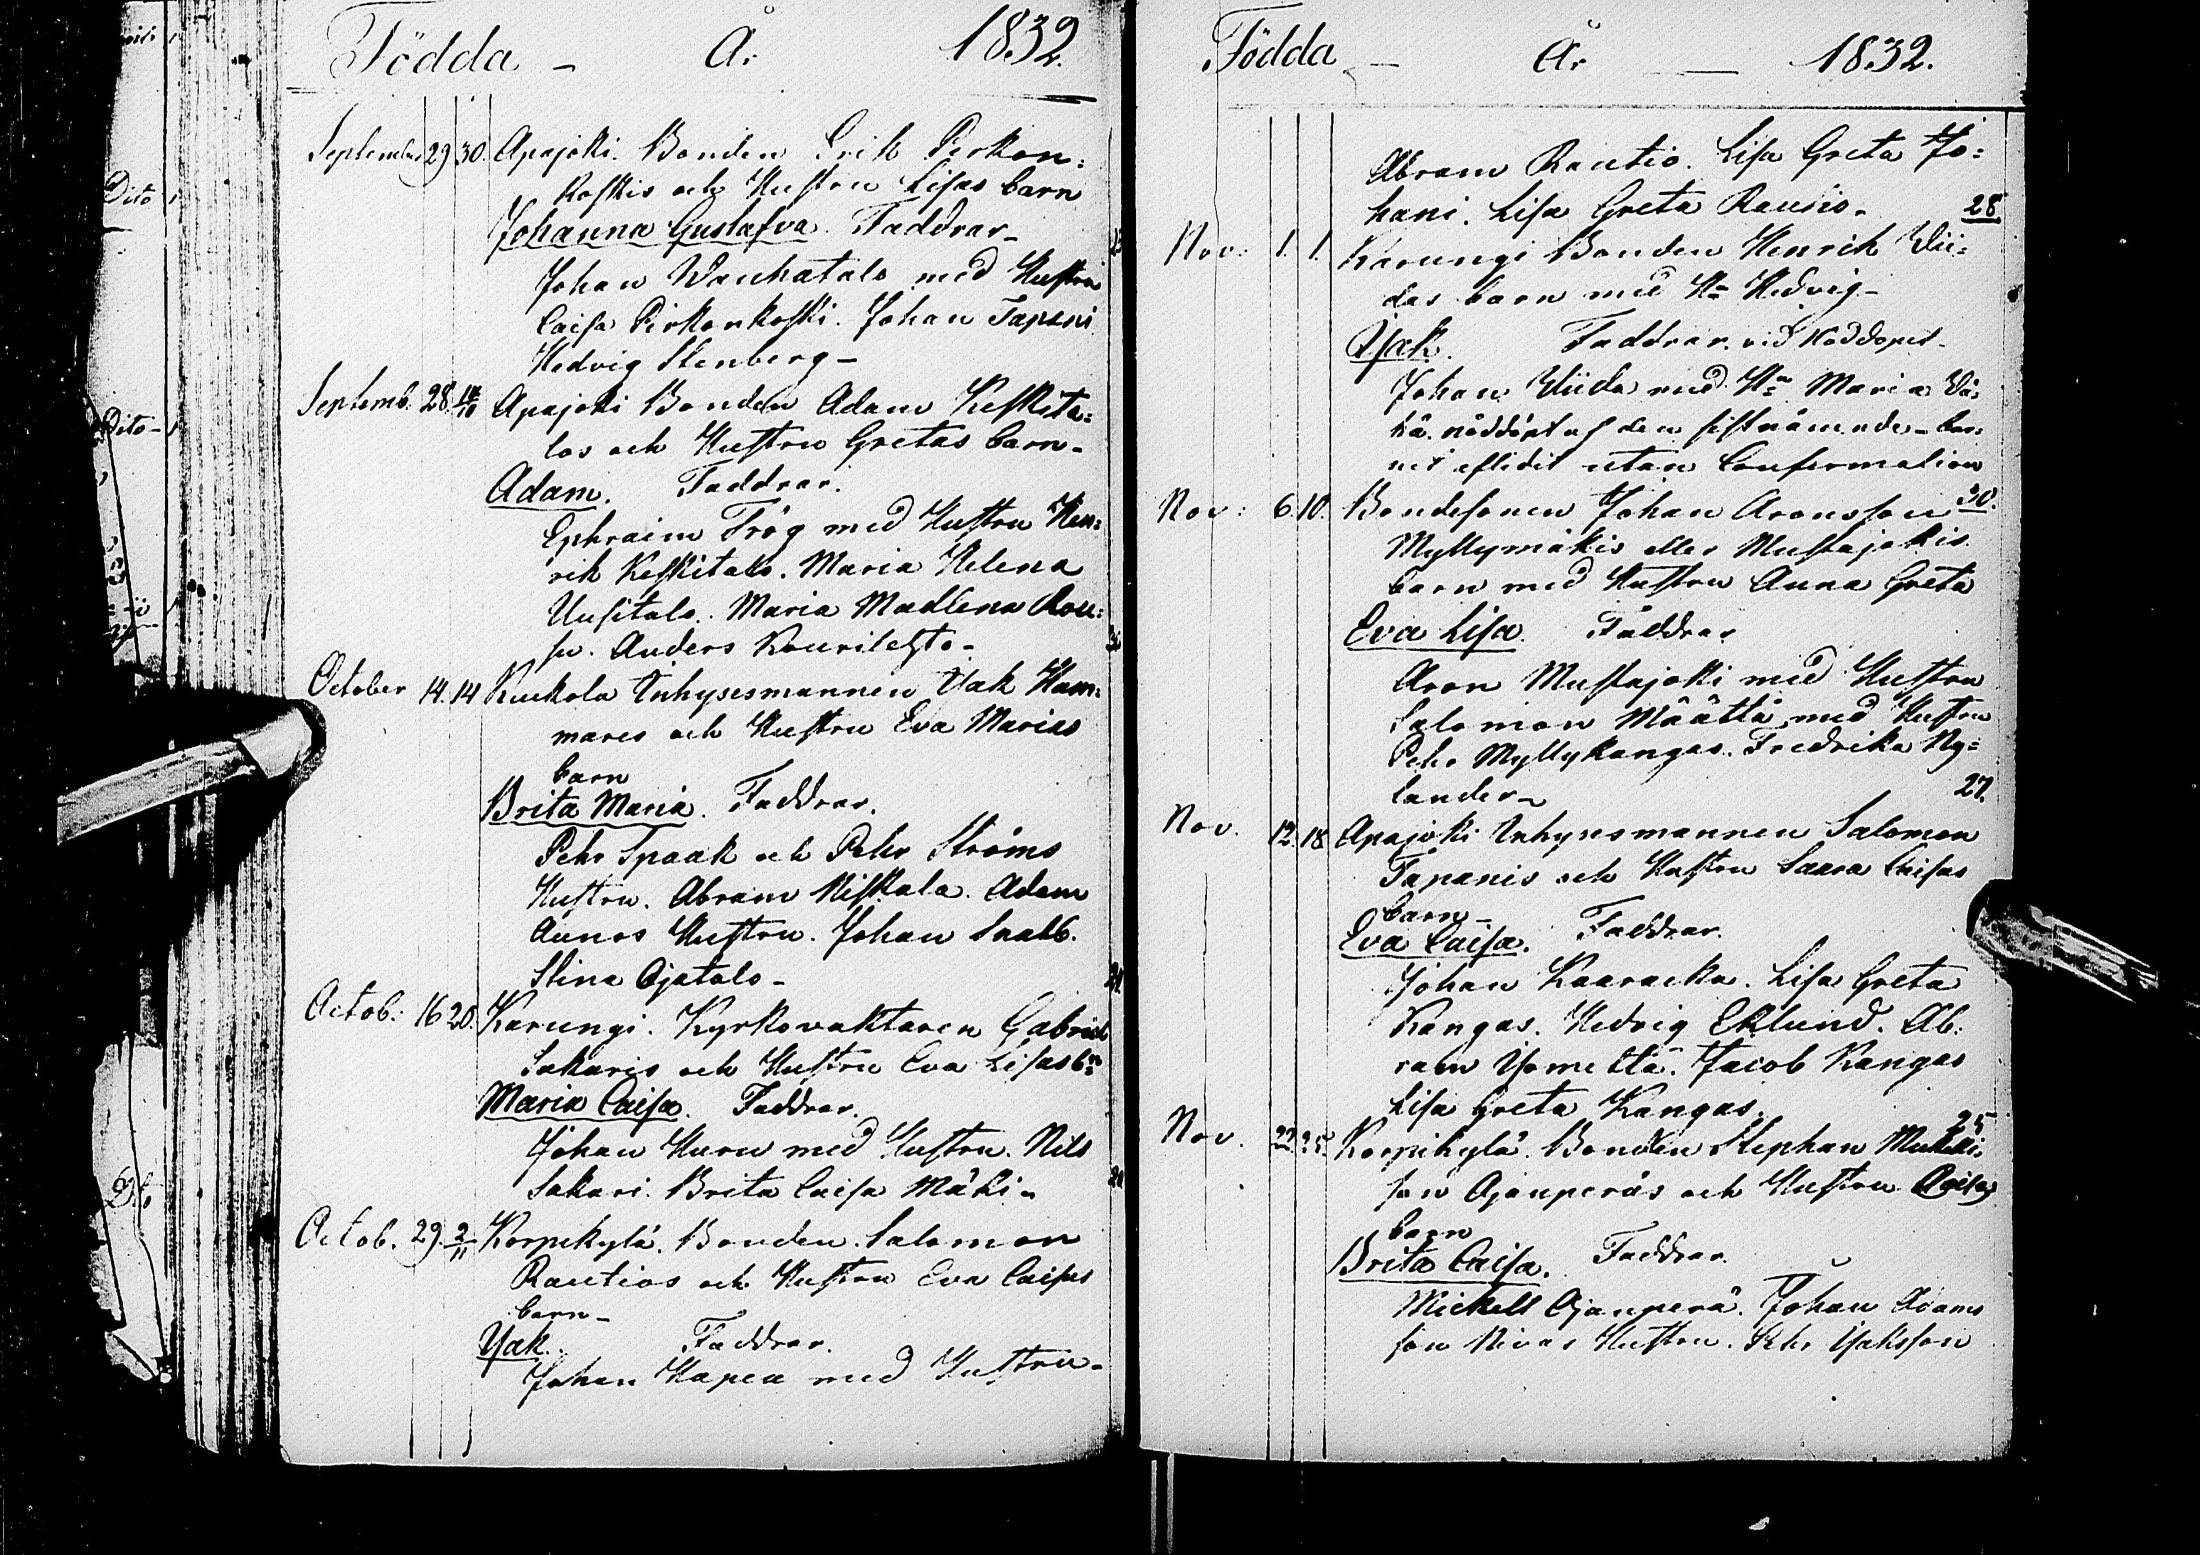 Födda - År 1832.
September 29 30. Apajoki. Bonden Erik Pirkon:
koskis och Hustru Lisas barn
Johanna Gustafva. Faddrar-
Johan Wanhatalo med Hustru
Caisa Pirkonkoski. Johan Tapani
Hedvig Stenberg-
Septemb. 28. 14/10 Apajoki Bonden Adam Keskita:
los och Hustru Gretas barn-
Adam. Faddrar.
Ephraim Frög med Hustru Hen:
rik Keskitalo. Maria Helena
Uusitalo. Maria Madlena Rou:
su. Anders Kourilehto-
October 14. 14 Kuckola Inhysesmannen Isak Ham:
mares och Hustru Eva Marias
barn
Brita Maria. Faddrar.
Pehr Spaak och Pehr Ströms
Hustru. Abram Niskala. Adam
Aunos Hustru. Johan Snabb.
Stina Ojatalo-
Octob: 16 20. Karungi. Kyrkovaktaren Gabriel
Sakaris och Hustru Eva Lisas bn
Maria Caisa. Faddrar.
Johan Huru med Hustru. Nils
Sakari. Brita Caisa Mäki-
Octob. 29. 2/11 Korpikylä. Bonden Salomon
Rautios och Hustru Eva Caisas
barn-
Isak. Faddrar.
Johan Hapea med Hustru-
Födda - År - 1832.
Abram Rautio. Lisa Greta Jo:
hani. Lisa Greta Rautio- 28
Nov: 1. 1. Karungi Bonden Henrik Vii:
das barn med Hu Hedvig-
Isak. Faddrar. vid Nöddopet-
Johan Viida med Hu Maria
nöddöpt af den sistnämnde- bar:
net aflidit utan Confirmation
Nov: 6. 10. Bondesonen Johan Aronsson 30.
Myllymäkis eller Mustajokis
barn med Hustru Anna Greta
Eva Lisa. Faddrar
Aron Mustajoki med Hustru
Salomon Määttä med Hustru
Pehr Myllykangas. Fredrika Ny:
lander- 27.
Nov. 12. 18 Apajoki Inhysesmannen Salomon
Tapanis och Hustru Saara Caisas
barn-
Eva Caisa. Faddrar.
Johan Kaaracka. Lisa Greta
Kangas. Hedvig Eklund. Ab:
ram Isometta. Jacob Kangas
Lisa Greta Kangas.
Nov. 22 25. Korpikylä. Bonden Stephan Mickels: 25
son Ojanperäs och Hustru Caisas
barn
Brita Caisa. Faddrar.
Mickell Ojanperä. Johan Adams
son Nivas Hustru. Pehr Isaksson